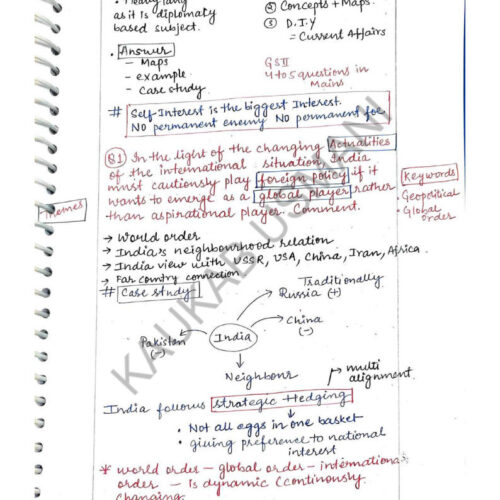 as it is diplomaty
based subject.
② Concepts + Maps.
③ D.I.Y
= Current Affairs
• Answer
— Maps
— example
— case study
GS II
4 to 5 questions in
Mains
# Self-Interest is the biggest Interest.
NO permanent enemy NO permanent foe
Q1) In the light of the changing Actualities
of the international situation India
must cautiously play foreign policy if it
wants to emerge as a global player rather
than aspirational player. Comment.
Themes
Keywords
• Geopolitical
• Global
order
→ World order
→ India's neighbourhood relation
→ India view with USSR, USA, China, Iran, Africa.
→ Far country connection
# Case study
Traditionally
Russia (+)
China
(-)
Pakistan
(-)
India
Neighbour
multi
alignment
India follows strategic Hedging
• Not all eggs in one basket
• giving preference to national
interest
* world order – global order – international
order – is dynamic (continously
changing
KAUKAB USMANI